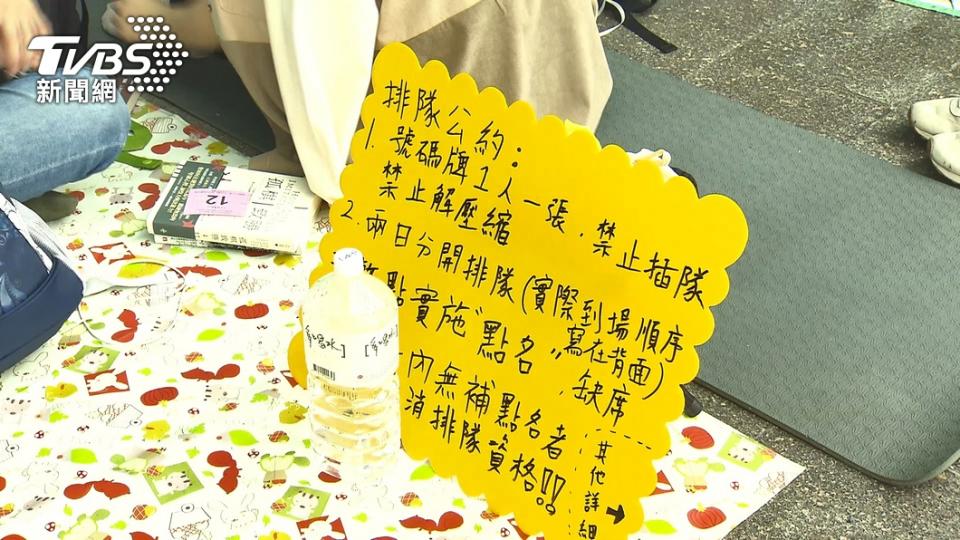 TVBS
新聞網
排隊公約：
1. 號碼牌1人一張，禁止插隊
禁止解壓縮
2. 兩日分開排隊(實際到場順序
寫在背面)
點實施"點名"，缺席
內無補點名者
消排隊資格!!
其他詳細→
12